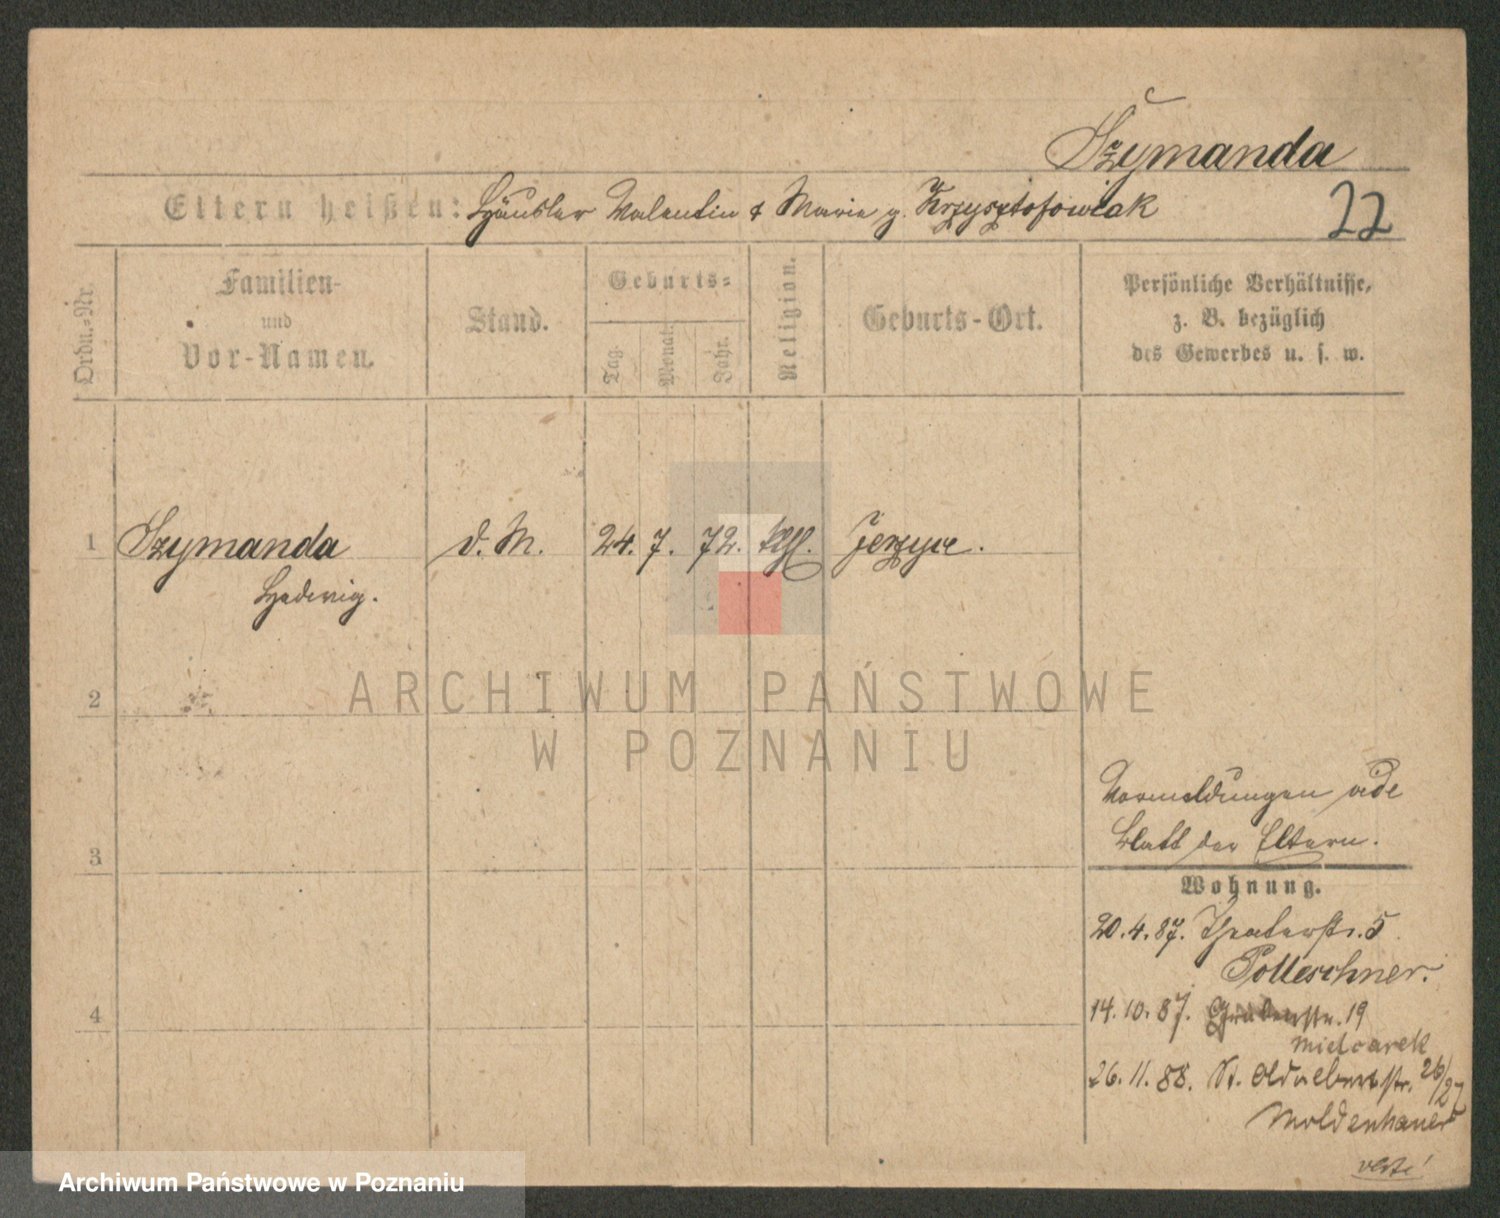 Szymanda
Eltern heißen: Häusler Valentin & Marie g. Krzysztofowiak
22
Ordn.-Nr.
Familien-
und
Vor-Namen.
Stand.
Geburts-
Tag.
Monat.
Jahr.
Religion.
Geburts-Ort.
Persönliche Verhältnisse,
z. B. bezüglich
des Gewerbes u. s. w.
1 Szymanda d. M. 24. 7. 72. kth. Jerzyce.
Hedwig.
2
ARCHIWUM PAŃSTWOWE
W POZNANIU
Vormeldungen vide
Blatt der Eltern.
3
Wohnung.
20.4.87. Theaterstr. 5
Polleschner.
4
14.10.87. Grabenstr. 19
Mielcarek
26.11.88. St. Adalbertstr. 26/27
Moldenhauer
verte!
Archiwum Państwowe w Poznaniu